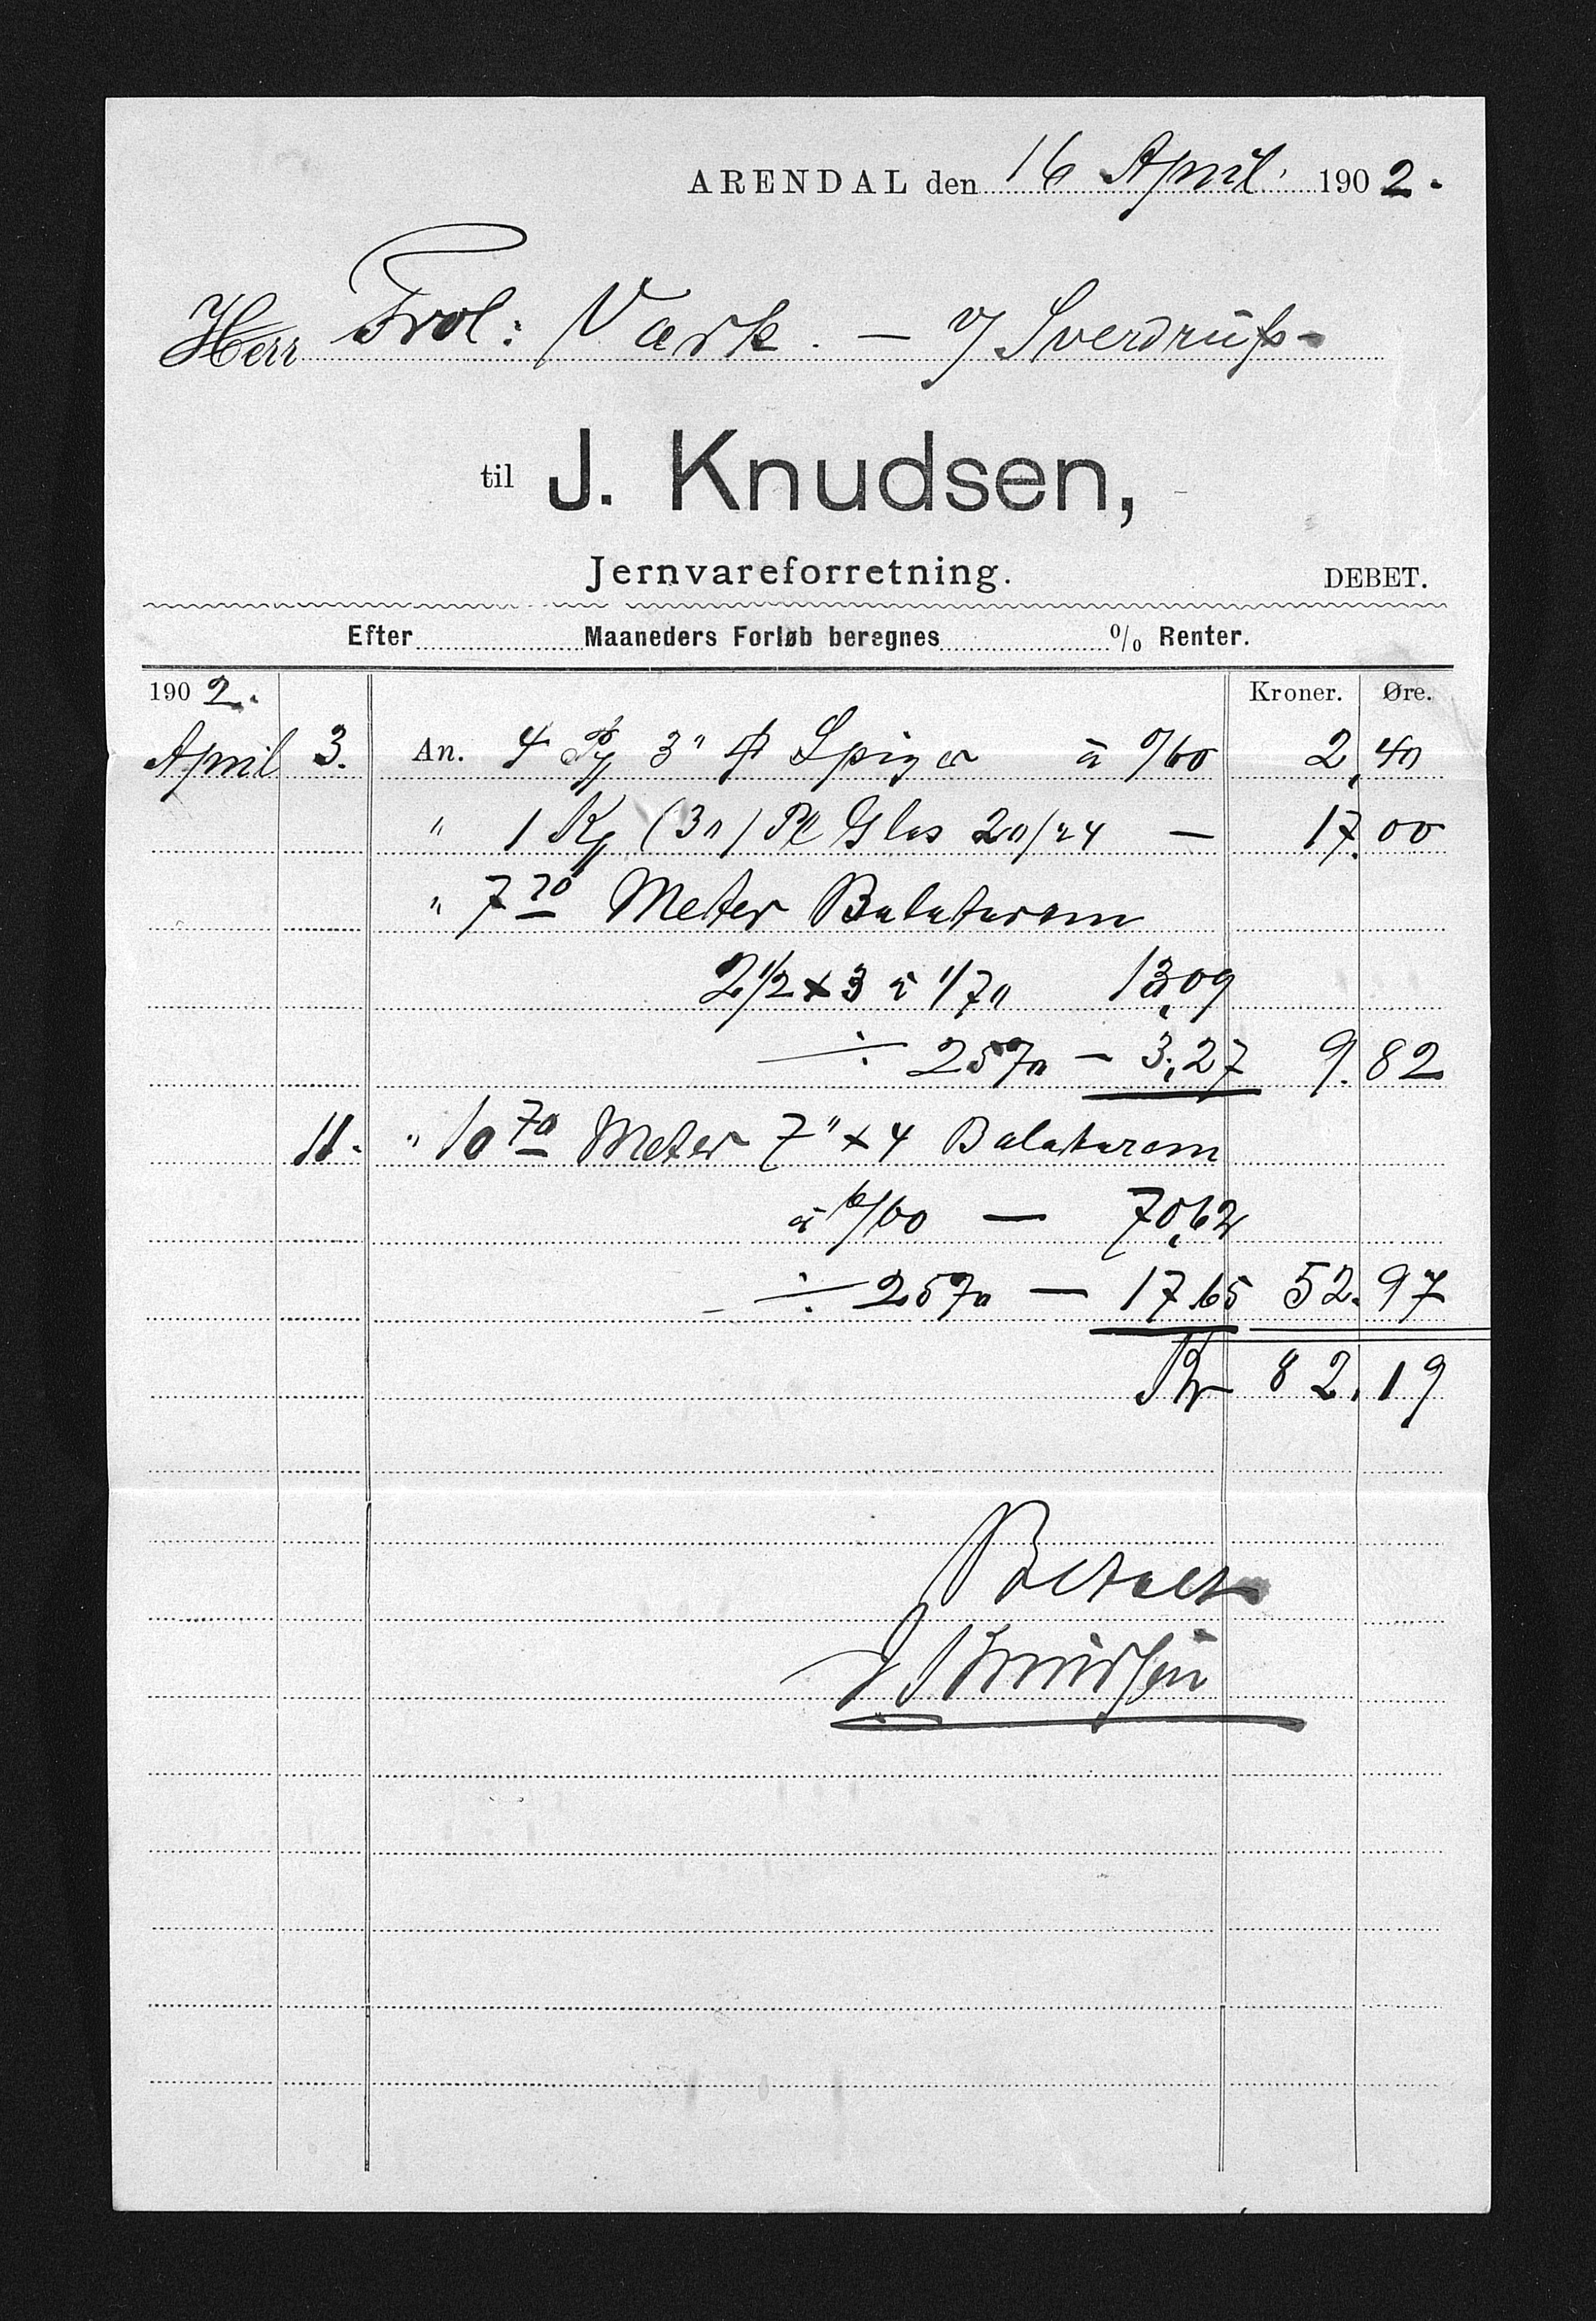 ARENDAL den 16 April 1902.
Herr Frol: Værk. — v/ Sverdrup
til J. Knudsen,
Jernvareforretning. DEBET.
Efter Maaneders Forløb beregnes % Renter.
1902. Kroner. Øre.
April 3. An. 4 Pk 3" # Spiger à 0/60 2,40
" 1 Ks (30) Pl Glas 20/24 — 17.00
" 7 70 Meter Balatarem
2 1/2 x 3 à 1/70 13,09
÷ 25% — 3,27 9.82
11. " 10 70 Meter 7" x 4 Balatarem
à 6/60 — 70,62
÷ 25% — 17,65 52.97
Kr 82.19
Betalt
J Knudsen